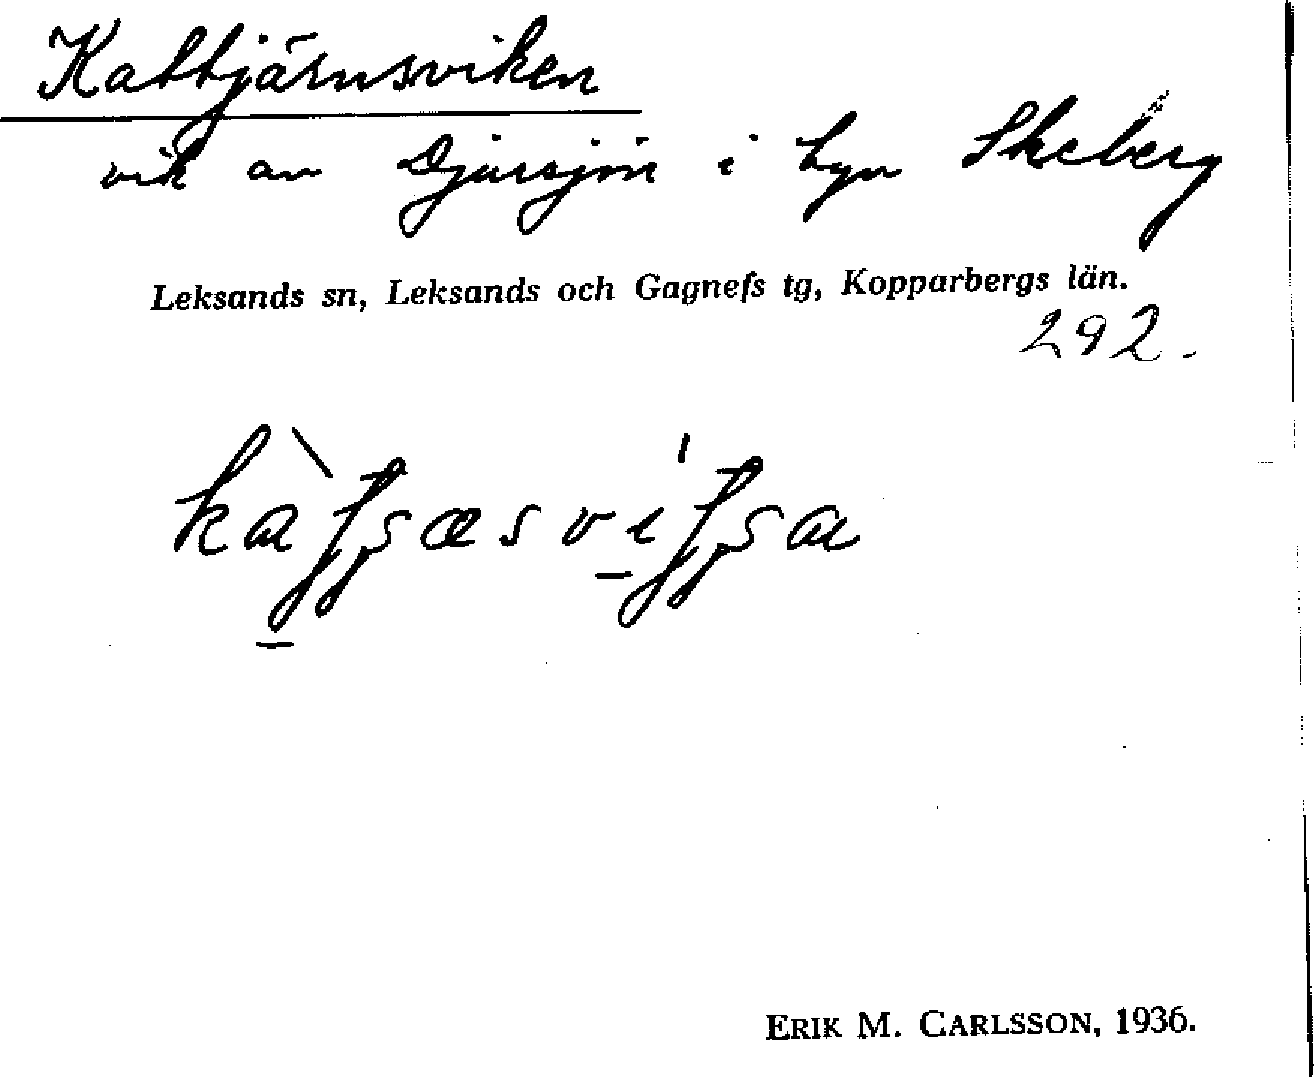 Kattjärnsviken
vik av Djursjön i byn Skeberg
Leksands sn, Leksands och Gagnefs tg, Kopparbergs län.
292.
ERIK M. CARLSSON, 1936.